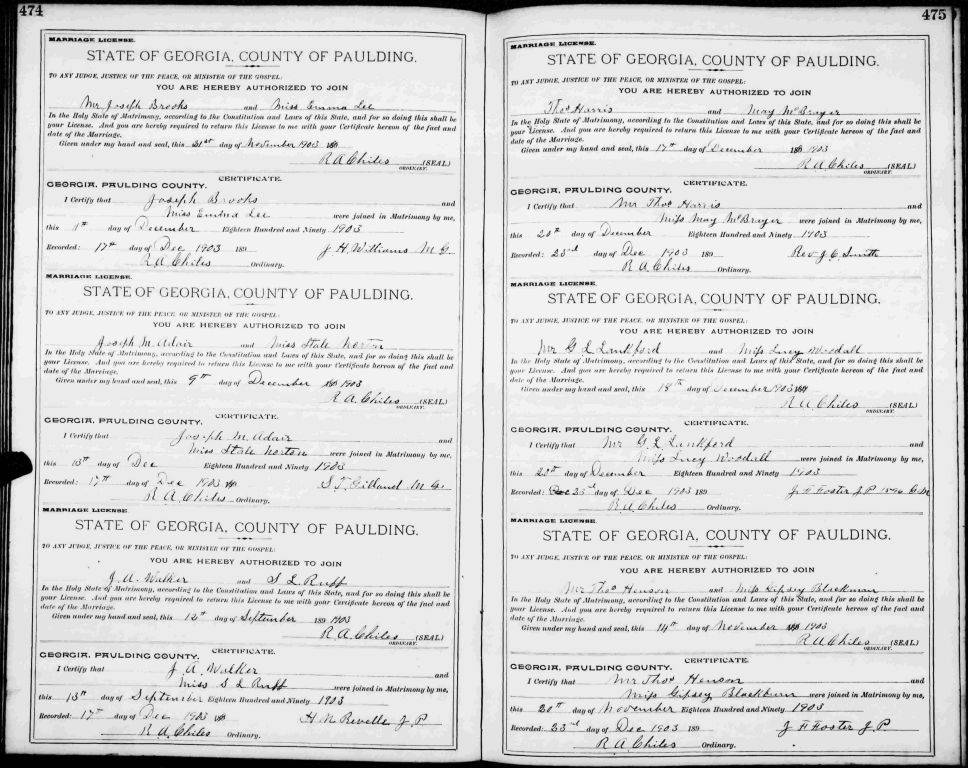 474
MARRIAGE LICENSE.
STATE OF GEORGIA, COUNTY OF PAULDING.
TO ANY JUDGE, JUSTICE OF THE PEACE, OR MINISTER OF THE GOSPEL:
YOU ARE HEREBY AUTHORIZED TO JOIN
Mr Joseph Brooks and Miss Emma Lee
In the Holy State of Matrimony, according to the Constitution and Laws of this State, and for so doing this shall be
your License. And you are hereby required to return this License to me with your Certificate hereon of the fact and
date of the Marriage.
Given under my hand and seal, this 21st day of November 1903 189
R A Chiles (SEAL)
ORDINARY.
CERTIFICATE.
GEORGIA, PAULDING COUNTY.
I Certify that Joseph Brooks and
Miss Emma Lee were joined in Matrimony by me,
this 1st day of December Eighteen Hundred and Ninety 1903
Recorded: 17th day of Dec 1903 189 J H Williams M G.
R A Chiles Ordinary.
MARRIAGE LICENSE.
STATE OF GEORGIA, COUNTY OF PAULDING.
TO ANY JUDGE, JUSTICE OF THE PEACE, OR MINISTER OF THE GOSPEL:
YOU ARE HEREBY AUTHORIZED TO JOIN
Joseph M. Adair and Miss State Norton
In the Holy State of Matrimony, according to the Constitution and Laws of this State, and for so doing this shall be
your License. And you are hereby required to return this License to me with your Certificate hereon of the fact and
date of the Marriage.
Given under my hand and seal, this 9th day of December 189 1903
R A Chiles (SEAL)
ORDINARY.
CERTIFICATE.
GEORGIA, PAULDING COUNTY.
I Certify that Joseph M Adair and
Miss State Norton were joined in Matrimony by me,
this 13th day of Dec Eighteen Hundred and Ninety 1903
Recorded: 17th day of Dec 1903 189 S. T. Gilland M G.
R A Chiles Ordinary.
MARRIAGE LICENSE.
STATE OF GEORGIA, COUNTY OF PAULDING.
TO ANY JUDGE, JUSTICE OF THE PEACE, OR MINISTER OF THE GOSPEL:
YOU ARE HEREBY AUTHORIZED TO JOIN
J. A. Walker and S L Ruff
In the Holy State of Matrimony, according to the Constitution and Laws of this State, and for so doing this shall be
your License. And you are hereby required to return this License to me with your Certificate hereon of the fact and
date of the Marriage.
Given under my hand and seal, this 12th day of September 189 1903
R A Chiles (SEAL)
ORDINARY.
CERTIFICATE.
GEORGIA, PAULDING COUNTY.
I Certify that J. A. Walker and
Miss S L Ruff were joined in Matrimony by me,
this 13th day of September Eighteen Hundred and Ninety 1903
Recorded: 17th day of Dec 1903 189 H N Revelle J P
R A Chiles Ordinary.
475
MARRIAGE LICENSE.
STATE OF GEORGIA, COUNTY OF PAULDING.
TO ANY JUDGE, JUSTICE OF THE PEACE, OR MINISTER OF THE GOSPEL:
YOU ARE HEREBY AUTHORIZED TO JOIN
Thos Harris and May McBrayer
In the Holy State of Matrimony, according to the Constitution and Laws of this State, and for so doing this shall be
your License. And you are hereby required to return this License to me with your Certificate hereon of the fact and
date of the Marriage.
Given under my hand and seal, this 17th day of December 189 1903
R A Chiles (SEAL)
ORDINARY.
CERTIFICATE.
GEORGIA, PAULDING COUNTY.
I Certify that Mr Thos Harris and
Miss May McBrayer were joined in Matrimony by me,
this 20th day of December Eighteen Hundred and Ninety 1903
Recorded: 23rd day of Dec 1903 189 Rev J. C. Smith
R A Chiles Ordinary.
MARRIAGE LICENSE.
STATE OF GEORGIA, COUNTY OF PAULDING.
TO ANY JUDGE, JUSTICE OF THE PEACE, OR MINISTER OF THE GOSPEL:
YOU ARE HEREBY AUTHORIZED TO JOIN
Mr G L Lankford and Miss Lucy Woodall
In the Holy State of Matrimony, according to the Constitution and Laws of this State, and for so doing this shall be
your License. And you are hereby required to return this License to me with your Certificate hereon of the fact and
date of the Marriage.
Given under my hand and seal, this 18th day of December 1903 189
R A Chiles (SEAL)
ORDINARY.
CERTIFICATE.
GEORGIA, PAULDING COUNTY.
I Certify that Mr G L Lankford and
Miss Lucy Woodall were joined in Matrimony by me,
this 20th day of December Eighteen Hundred and Ninety 1903
Recorded: Dec 23rd day of Dec 1903 189 J. F Foster J P
R A Chiles Ordinary.
MARRIAGE LICENSE.
STATE OF GEORGIA, COUNTY OF PAULDING.
TO ANY JUDGE, JUSTICE OF THE PEACE, OR MINISTER OF THE GOSPEL:
YOU ARE HEREBY AUTHORIZED TO JOIN
Mr Thos Henson and Miss Gipsey Blackman
In the Holy State of Matrimony, according to the Constitution and Laws of this State, and for so doing this shall be
your License. And you are hereby required to return this License to me with your Certificate hereon of the fact and
date of the Marriage.
Given under my hand and seal, this 14th day of November 189 1903
R A Chiles (SEAL)
ORDINARY.
CERTIFICATE.
GEORGIA, PAULDING COUNTY.
I Certify that Mr Thos Henson and
Miss Gipsey Blackburn were joined in Matrimony by me,
this 20th day of November Eighteen Hundred and Ninety 1903
Recorded: 23rd day of Dec 1903 189 J F Foster J. P.
R A Chiles Ordinary.